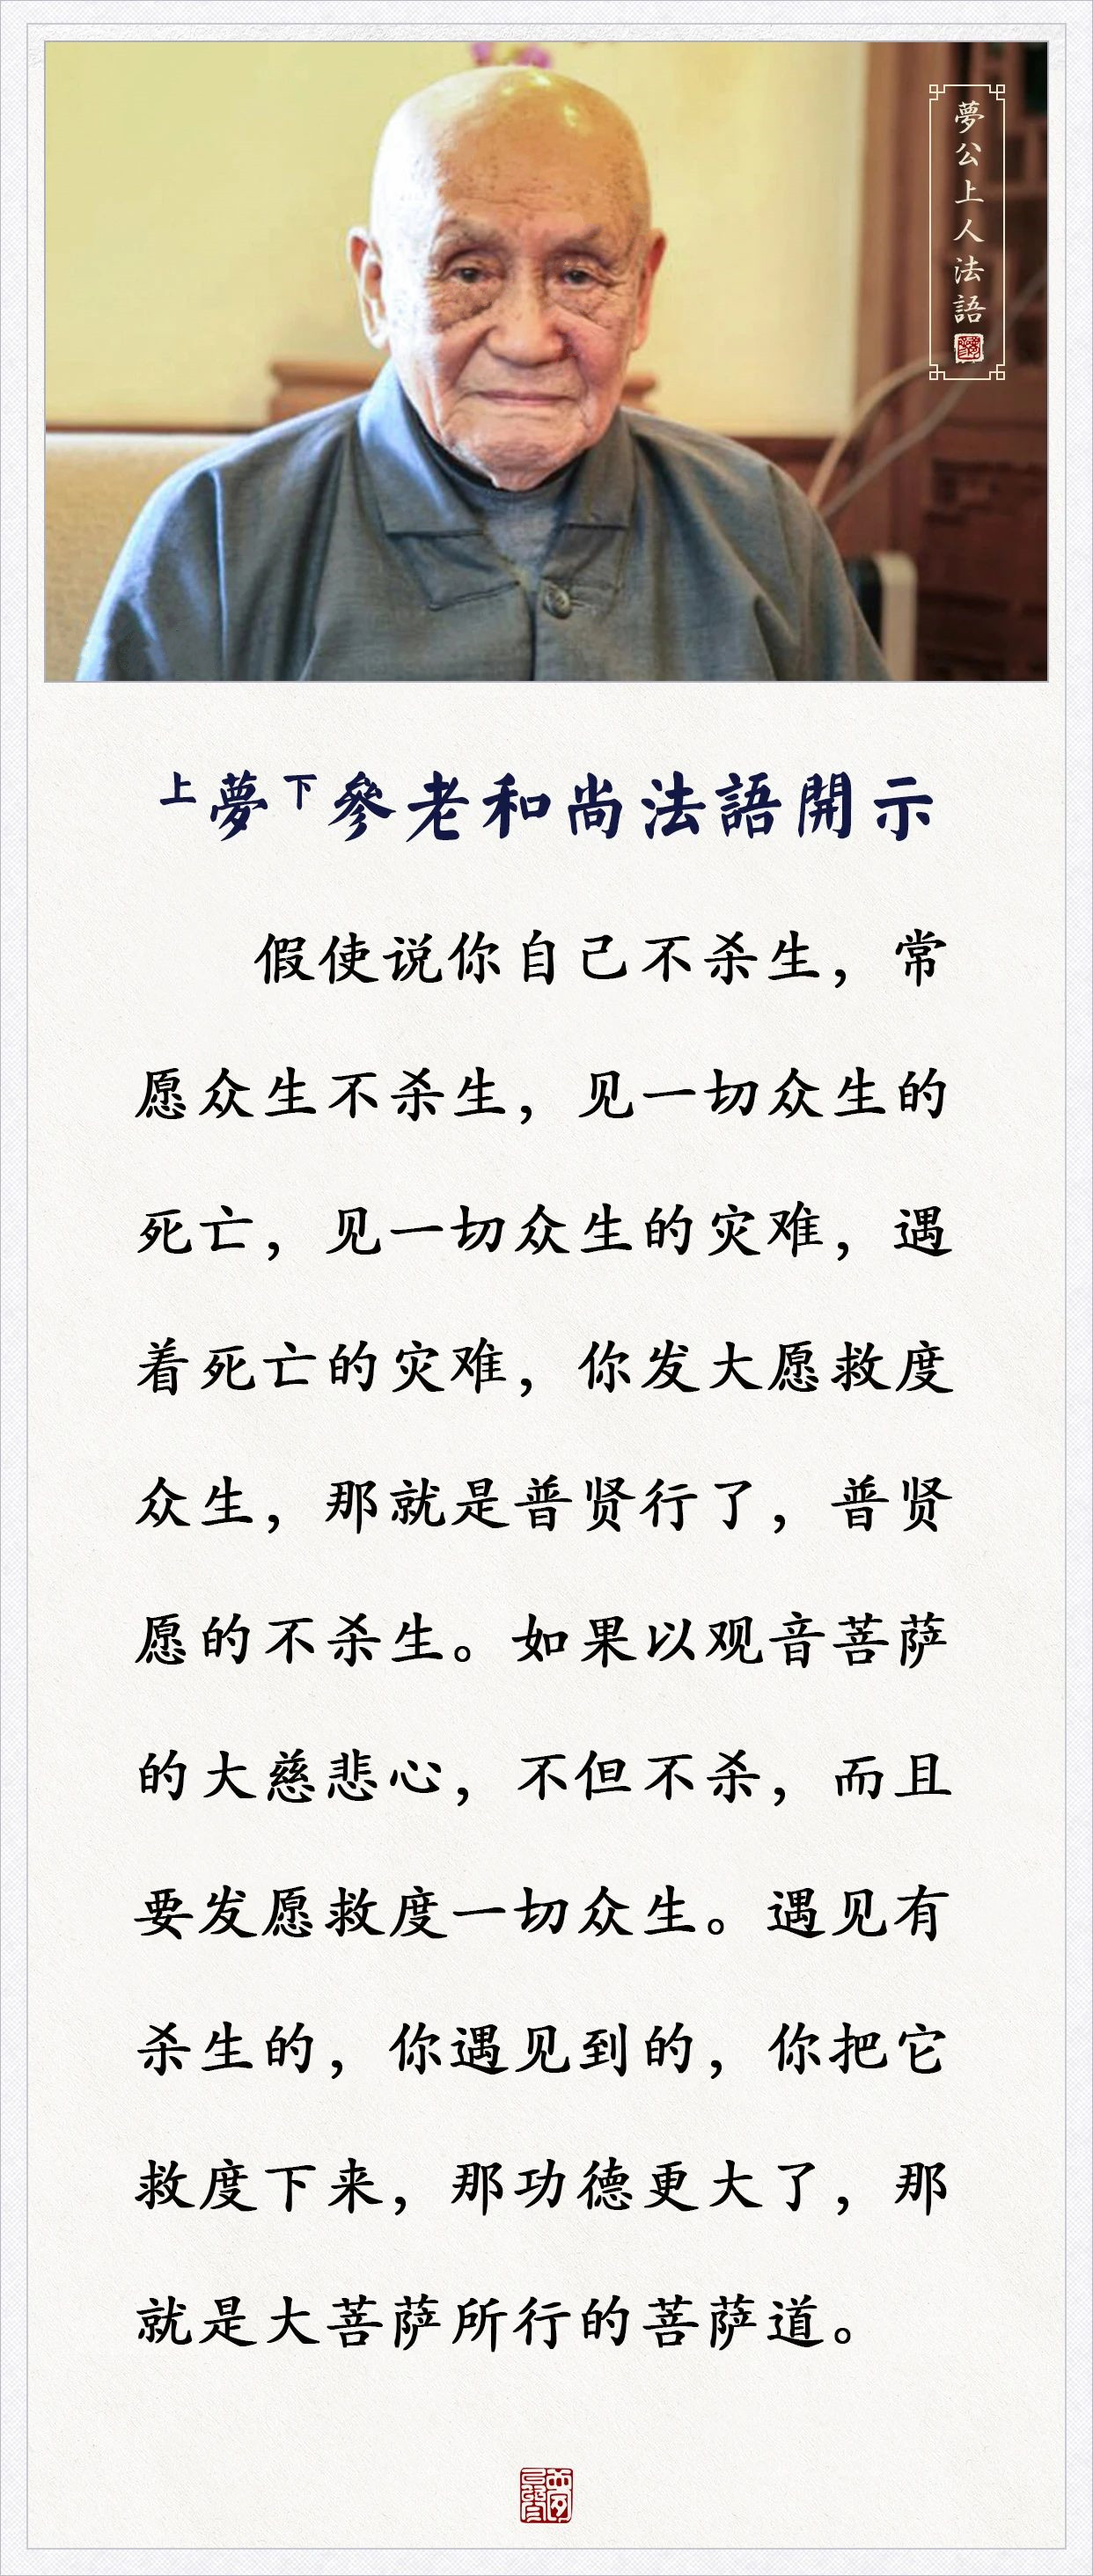 夢公上人法語
上夢下參老和尚法語開示
假使说你自己不杀生，常
愿众生不杀生，见一切众生的
死亡，见一切众生的灾难，遇
着死亡的灾难，你发大愿救度
众生，那就是普贤行了，普贤
愿的不杀生。如果以观音菩萨
的大慈悲心，不但不杀，而且
要发愿救度一切众生。遇见有
杀生的，你遇见到的，你把它
救度下来，那功德更大了，那
就是大菩萨所行的菩萨道。
夢參